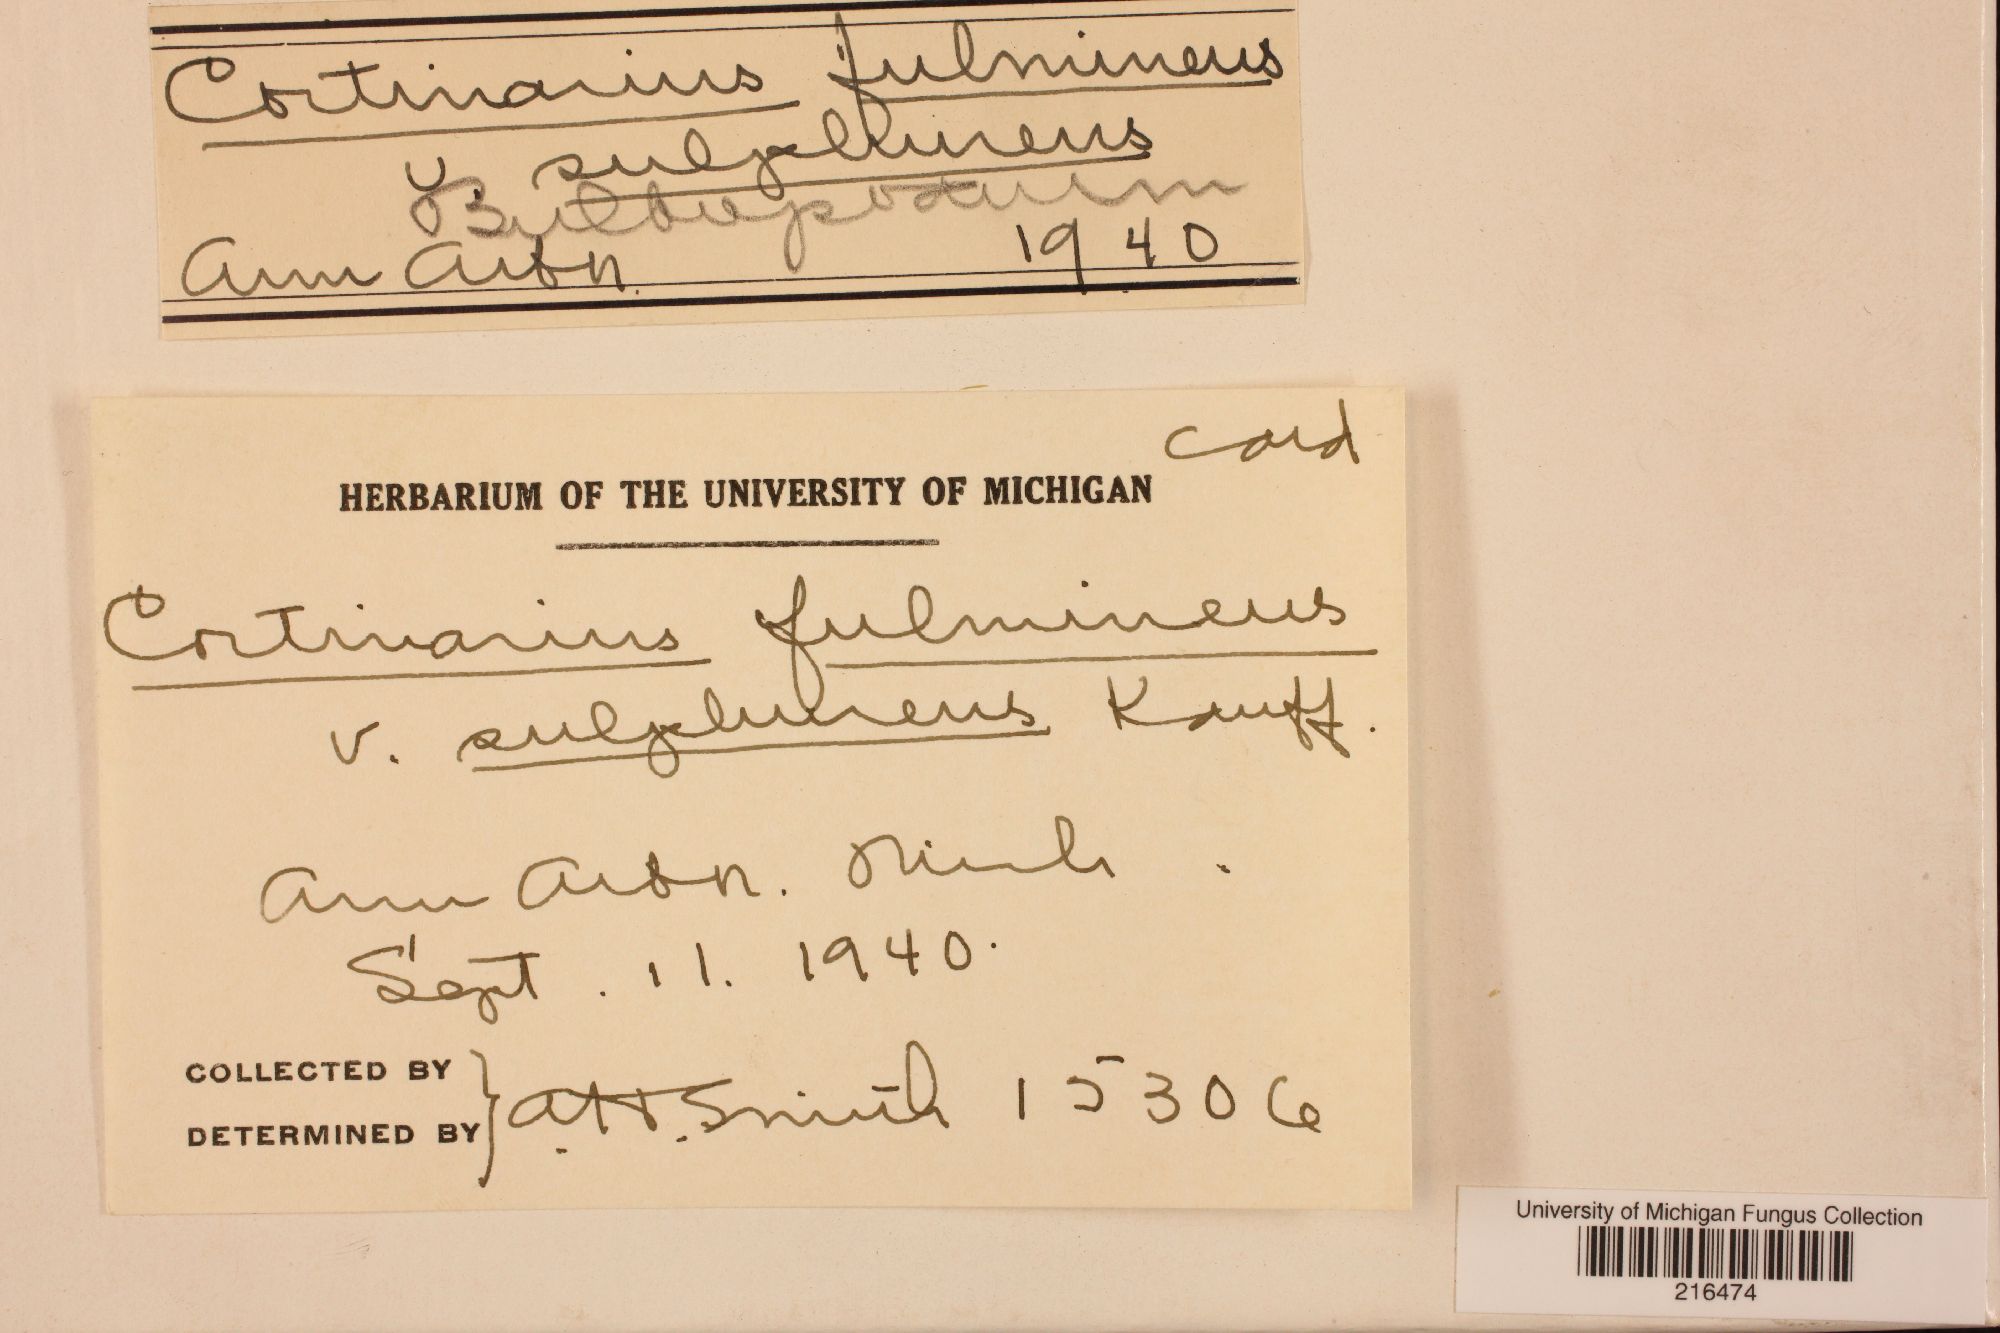 Cortinarius fulmineus
v. sulphureus
Bulbopodium
Ann Arbor. 1940
card
HERBARIUM OF THE UNIVERSITY OF MICHIGAN
Cortinarius fulmineus
v. sulphureus Kauff.
Ann Arbor. Mich.
Sept. 11. 1940.
COLLECTED BY
DETERMINED BY } A.H. Smith 15306
University of Michigan Fungus Collection
216474